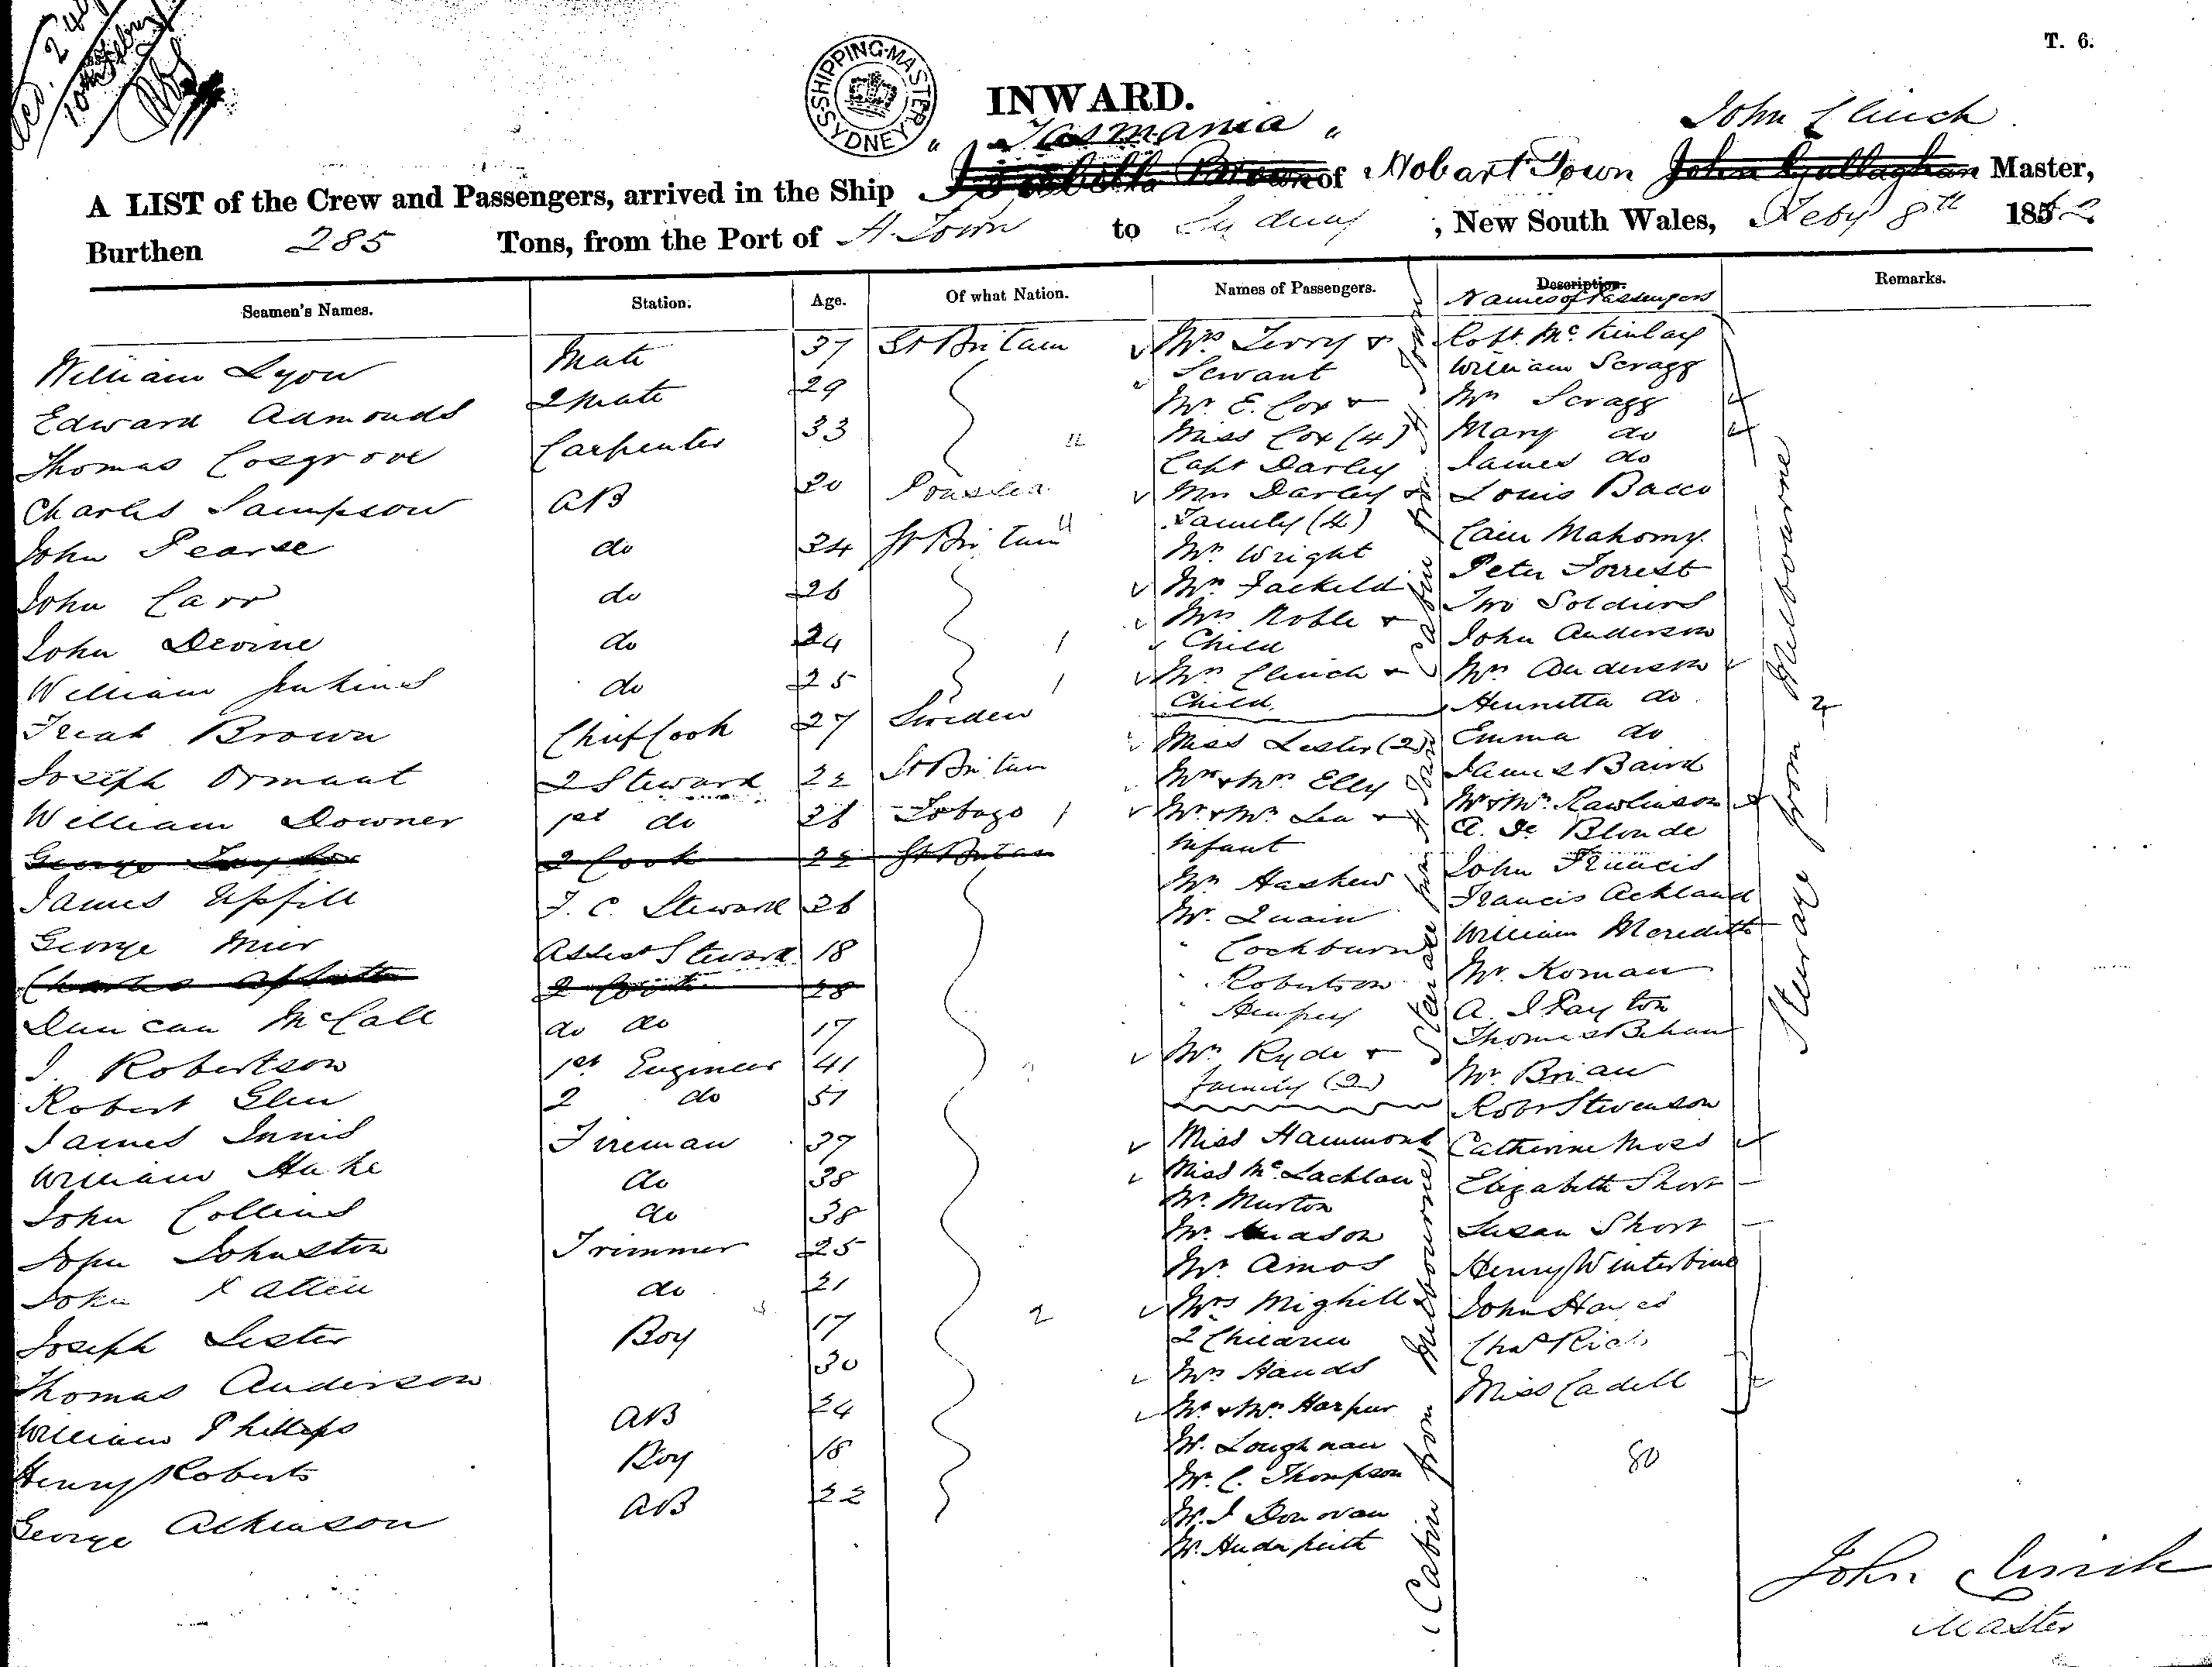 T. 6.
SHIPPING-MASTER SYDNEY
INWARD.
" Tasmania "
John Clinch
A LIST of the Crew and Passengers, arrived in the Ship Isabella Brown of Hobart Town John Gallaghan Master,
Burthen 285 Tons, from the Port of H. Town to Sydney ; New South Wales, Feby 8th 1862
Seamen's Names. Station. Age. Of what Nation. Names of Passengers. Description. Remarks.
Names of Passengers
William Lyon Mate 37 Gt Britain
Edward Admonds 2 Mate 29
Thomas Cosgrove Carpenter 33
Charles Sampson AB 20 Prussia
John Pearse do 34 Gt Britain
John Carr do 26
John Devine do 24
William Jenkins do 25
Freak Brown Chief Cook 27 Sweden
Joseph Ormant 2 Steward 22 Gt Britain
William Downer 1st do 36 Tobago
George 2 Cook 22 Gt Britain
James Upfill F. C. Steward 26
George Mier Assist Steward 18
Charles 28
Duncan McCall do do 17
J. Robertson 1st Engineer 41
Robert Glen 2 do 51
James Innis Fireman 37
William Hake do 38
John Collins do 38
John Johnston Trimmer 25
John do 21
Joseph Lester Boy 17
Thomas Anderson 30
William Phillips AB 24
Henry Roberts Boy 18
George Atkinson AB 22
Mrs Terry &
Servant
Mr. E. Cox &
Miss Cox (4)
Capt Darley
Mrs Darley &
Family (4)
Mr Wright
Mrs
Mrs Roble &
Child
Mrs Clinch &
Child
Cabin from H. Town
Miss Lester (2)
Mr & Mrs Elly
Mr & Mrs Lea &
Infant
Mr Haskew
Mr. Quain
" Cockburn
" Robertson
" Hempey
Mrs Ryde &
family (2)
Steerage from H. Town
Miss Hammond
Miss McLachlan
Mr. Murton
Mr. Mason
Mr. Amos
Mrs Mighill &
2 Children
Mrs Hands
Mr & Mrs Harpur
Mr. Loughnan
Mr. C. Thompson
Mr. J Donovan
Mr.
Cabin from Melbourne
Robt. McKinlay
William Scragg
Mrs Scragg
Mary do
James do
Louis Bacco
Cain Mahomy
Peter Forrest
Two Soldiers
John Anderson
Mrs Anderson
Henrietta do
Emma do
James Baird
Mr & Mrs. Rawlinson
A. De Blonde
John Francis
Francis Ackland
William Meredith
Mr. Roman
A. J Payton
Thomas Behan
Mr. Brian
Robt Stevenson
Catherine Moss
Elizabeth Short
Susan Short
Henry Winterbine
John Hayes
Chas Rich
Miss Cadell
Steerage from Melbourne
80
John Clinch
Master